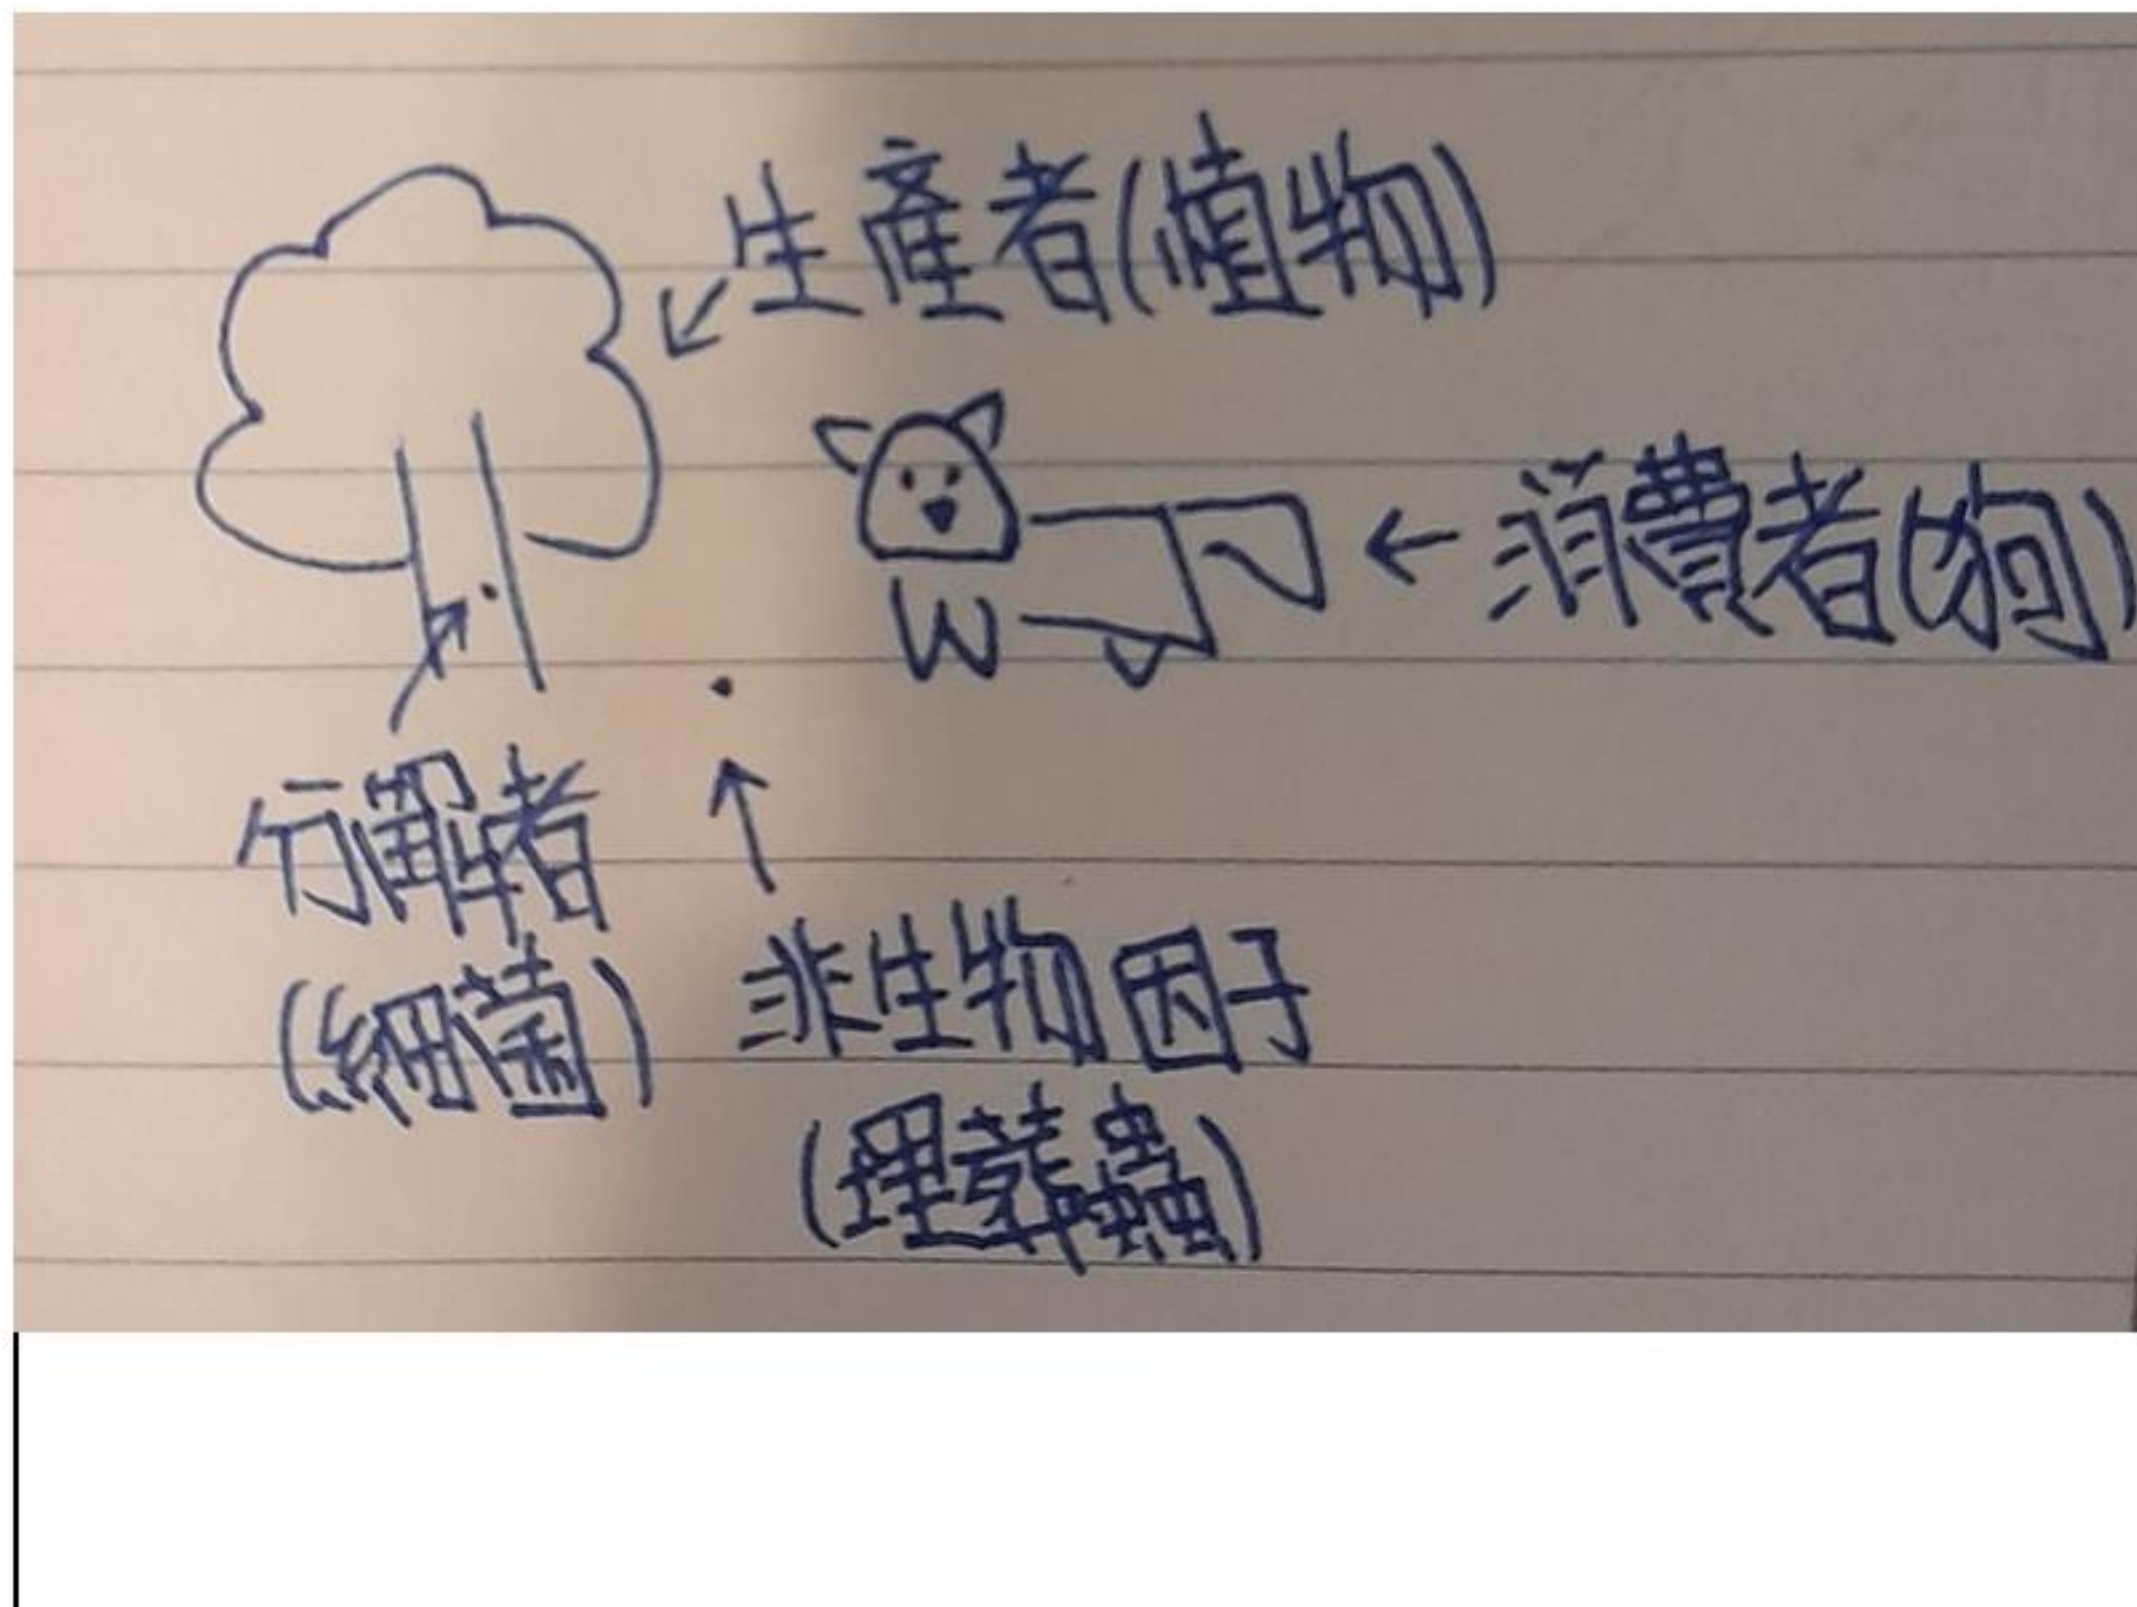 生產者(植物)
消費者(狗)
分解者
(細菌)
非生物因子
(埋葬蟲)